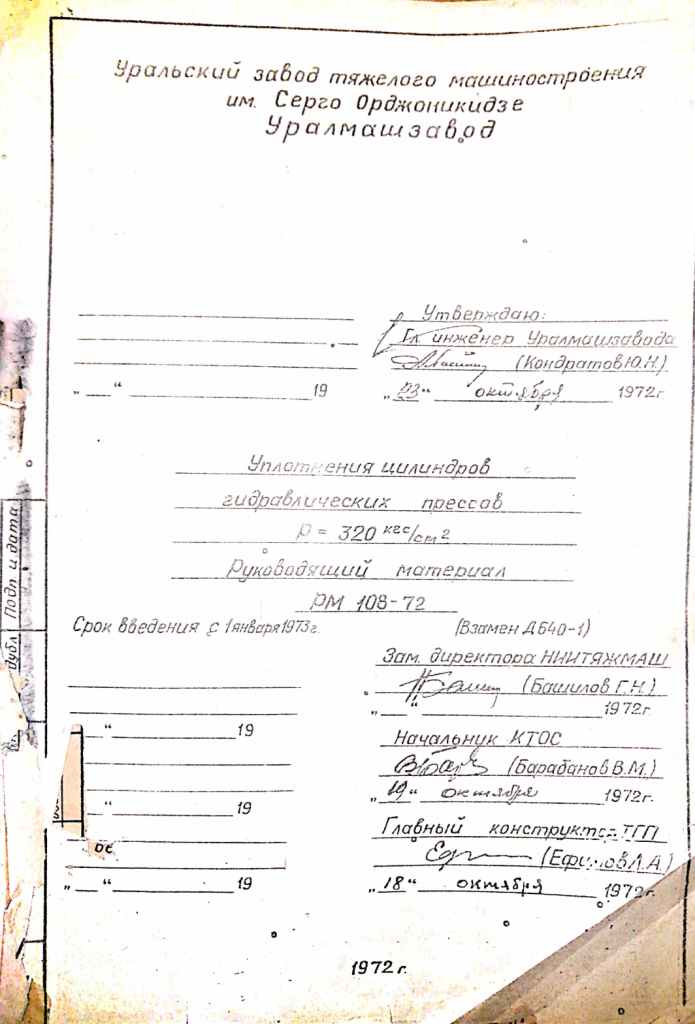 Уральский завод тяжелого машиностроения
им. Серго Орджоникидзе
Уралмашзавод
Утверждаю:
Гл. инженер Уралмашзавода
(Кондратов Ю.Н.)
„ “ 19
„23“ октября 1972г
Уплотнения цилиндров
гидравлических прессов
Р = 320 кгс/см2
Руководящий материал
РМ 108-72
Срок введения с 1 января 1973г.
(Взамен Д640-1)
Зам. директора НИИТЯЖМАШ
(Башилов Г.Н.)
„ “ 1972г.
“ 19
Начальник КТОС
(Барабанов В.М.)
„19“ октября 1972г.
“ 19
Главный конструктор ТГП
(Ефимов Л.А.)
„ “ 19
„18“ октября 1972г
1972г.
Подп и дата
дубл